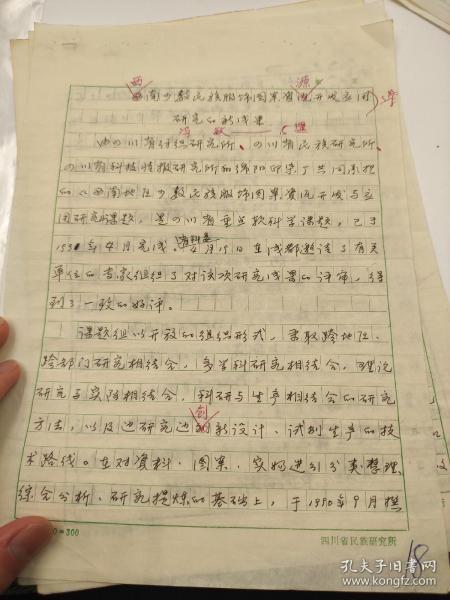 西南少数民族服饰图案资源开发应用
研究的新成果
冯敏
由四川省纺织研究所、四川省民族研究所、
四川省科技情报研究所和绵阳印染厂共同承担
的《西南地区少数民族服饰图案资源开发与应
用研究》课题，是四川省重点软科学课题，已于
年4月完成。省科委 月15日在成都邀请了有关
单位的专家组织了对该次研究成果的评审，得
到了一致的好评。
课题组以开放的组织形式，采取跨地区、
跨部门研究相结合，多学科研究相结合，理论
研究与实际相结合，科研与生产相结合的研究
方法，以及边研究边创新设计、试制生产的技
术路线。在对资料、图案、实物进行分类整理
综合分析、研究提炼的基础上，于1990年9月撰
0=300
四川省民族研究所
18
孔夫子旧书网